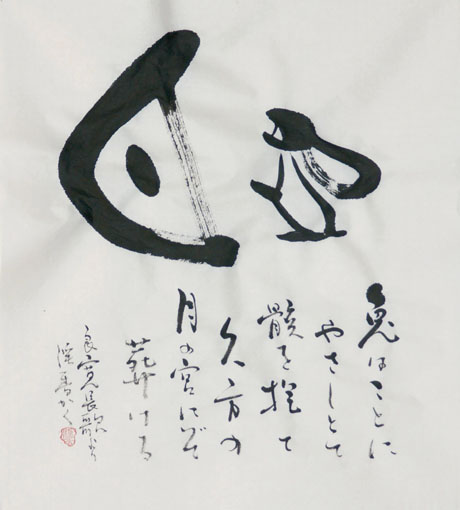 兎月
兎はことに
やさしとて
骸を抱て
久方の
月の宮にぞ
葬ける
良寛長歌より
かく